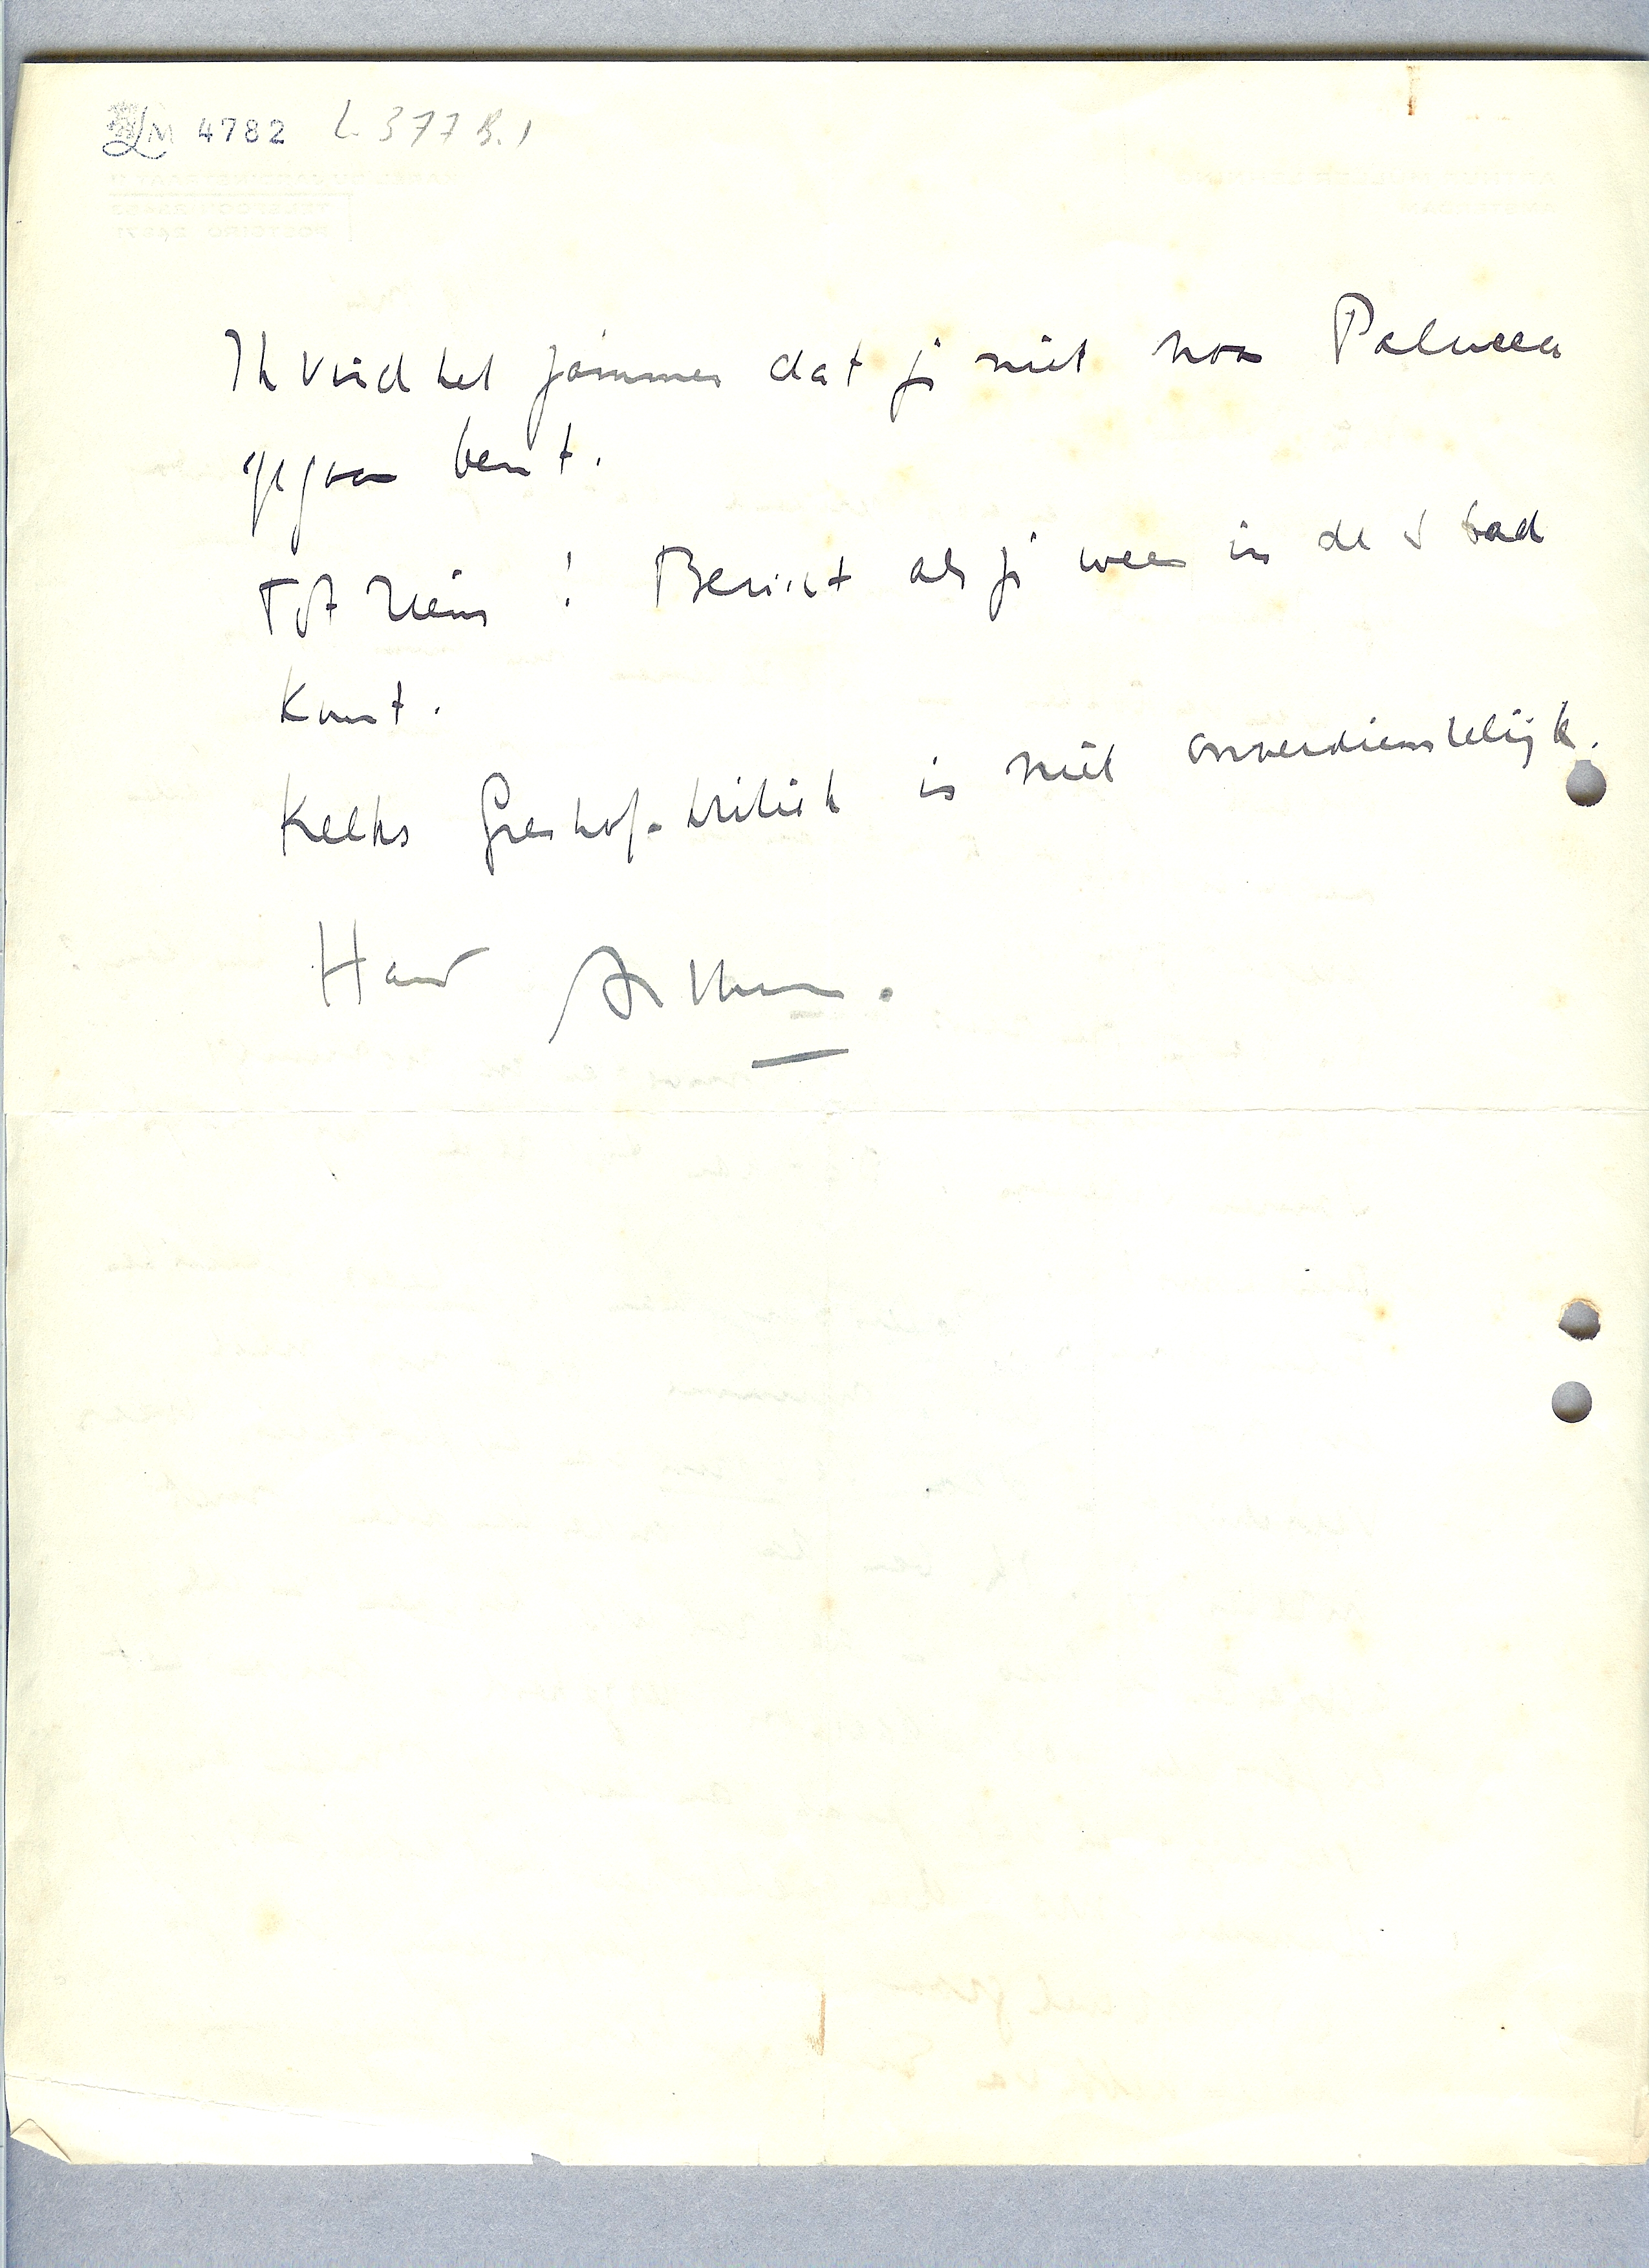 LM 4782 L 377 B.1
Ik vind het jammer dat je niet naar Palucca
gegaan bent.
Tot ziens! Bericht als je weer in de stad
komt.
Kelks Greshof-kritiek is niet onverdienstelijk.
Arthur.